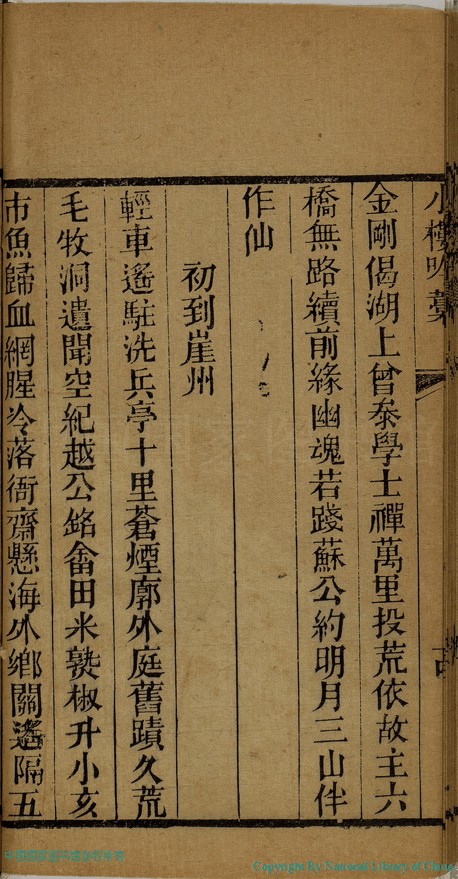 小樓吟藁
金剛偈湖上曾泰學士禪萬里投荒依故主六
橋無路續前緣幽魂若踐蘇公約明月三山伴
作仙
初到崖州
輕車遙駐洗兵亭十里蒼煙廓外庭舊蹟久荒
毛牧洞遺聞空紀越公銘畬田米熟椒升小亥
市魚歸血網腥冷落衙齋懸海外鄉關遙隔五
Copyright By National Library of China